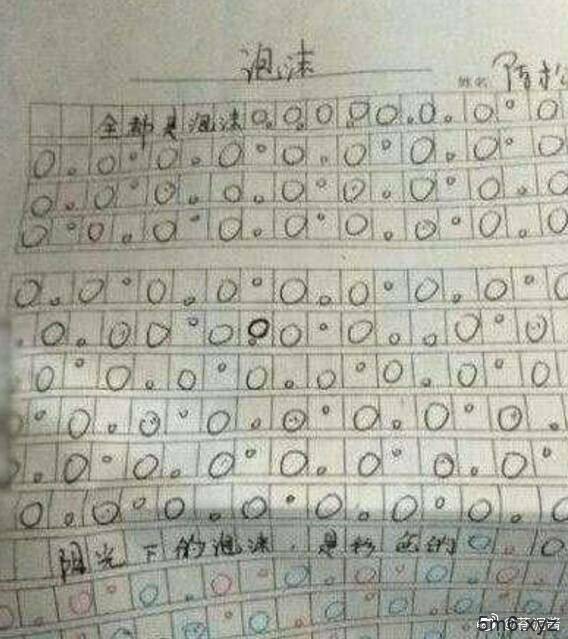 泡沫
姓名
全都是泡沫
阳光下的泡沫,是彩色的
5m6.xyz